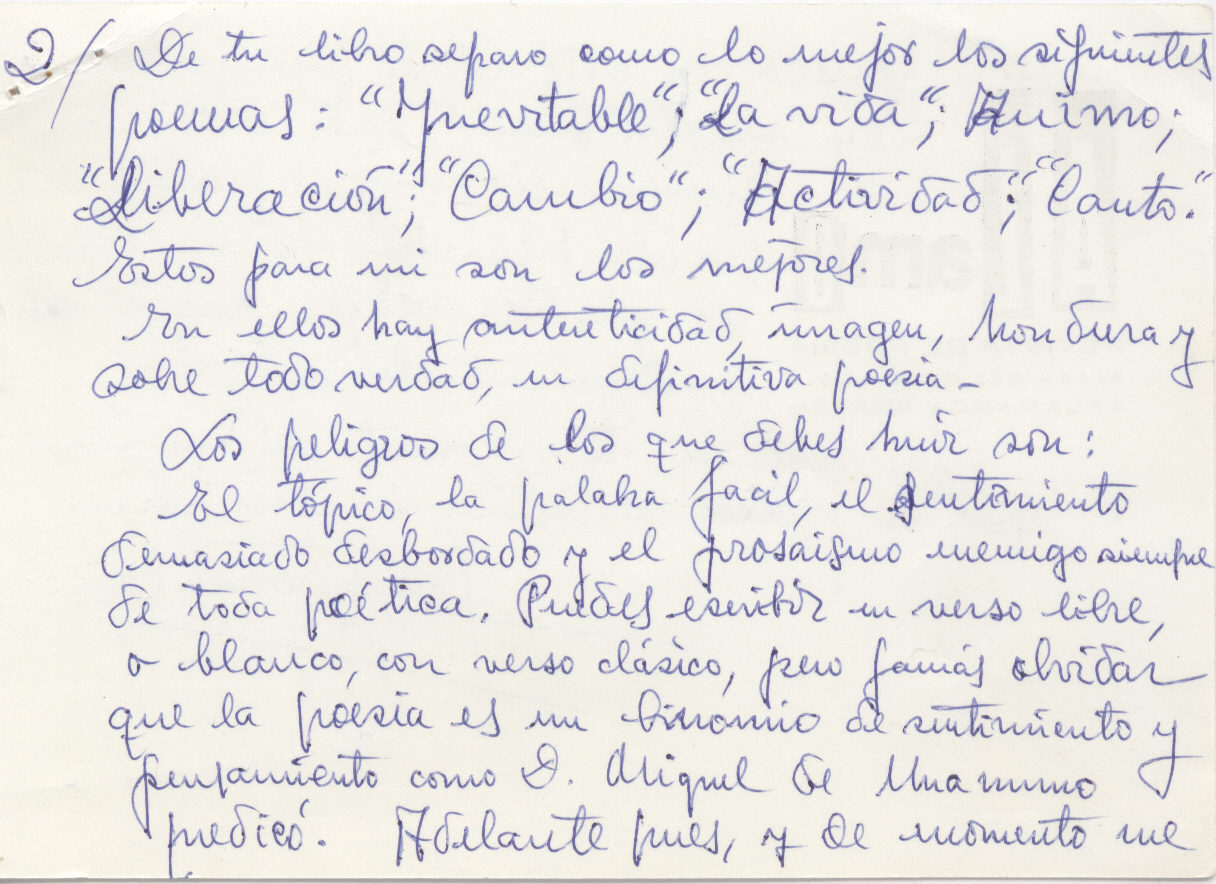 2/ De tu libro separo como lo mejor los siguientes
poemas: "Inevitable"; "La vida"; Animo;
"Liberación"; "Cambio"; "Actividad"; "Canto."
Estos para mi son los mejores.
En ellos hay autenticidad, imagen, hondura y
sobre todo verdad, en definitiva poesia-
Los peligros de los que debes huir son:
El tópico, la palabra facil, el sentimiento
demasiado desbordado y el prosaismo enemigo siempre
de toda poética. Puedes escribir en verso libre,
o blanco, con verso clásico, pero jamás olvidar
que la poesia es un binomio de sentimiento y
pensamiento como D. Miguel de Unamuno
predicó. Adelante pues, y de momento me